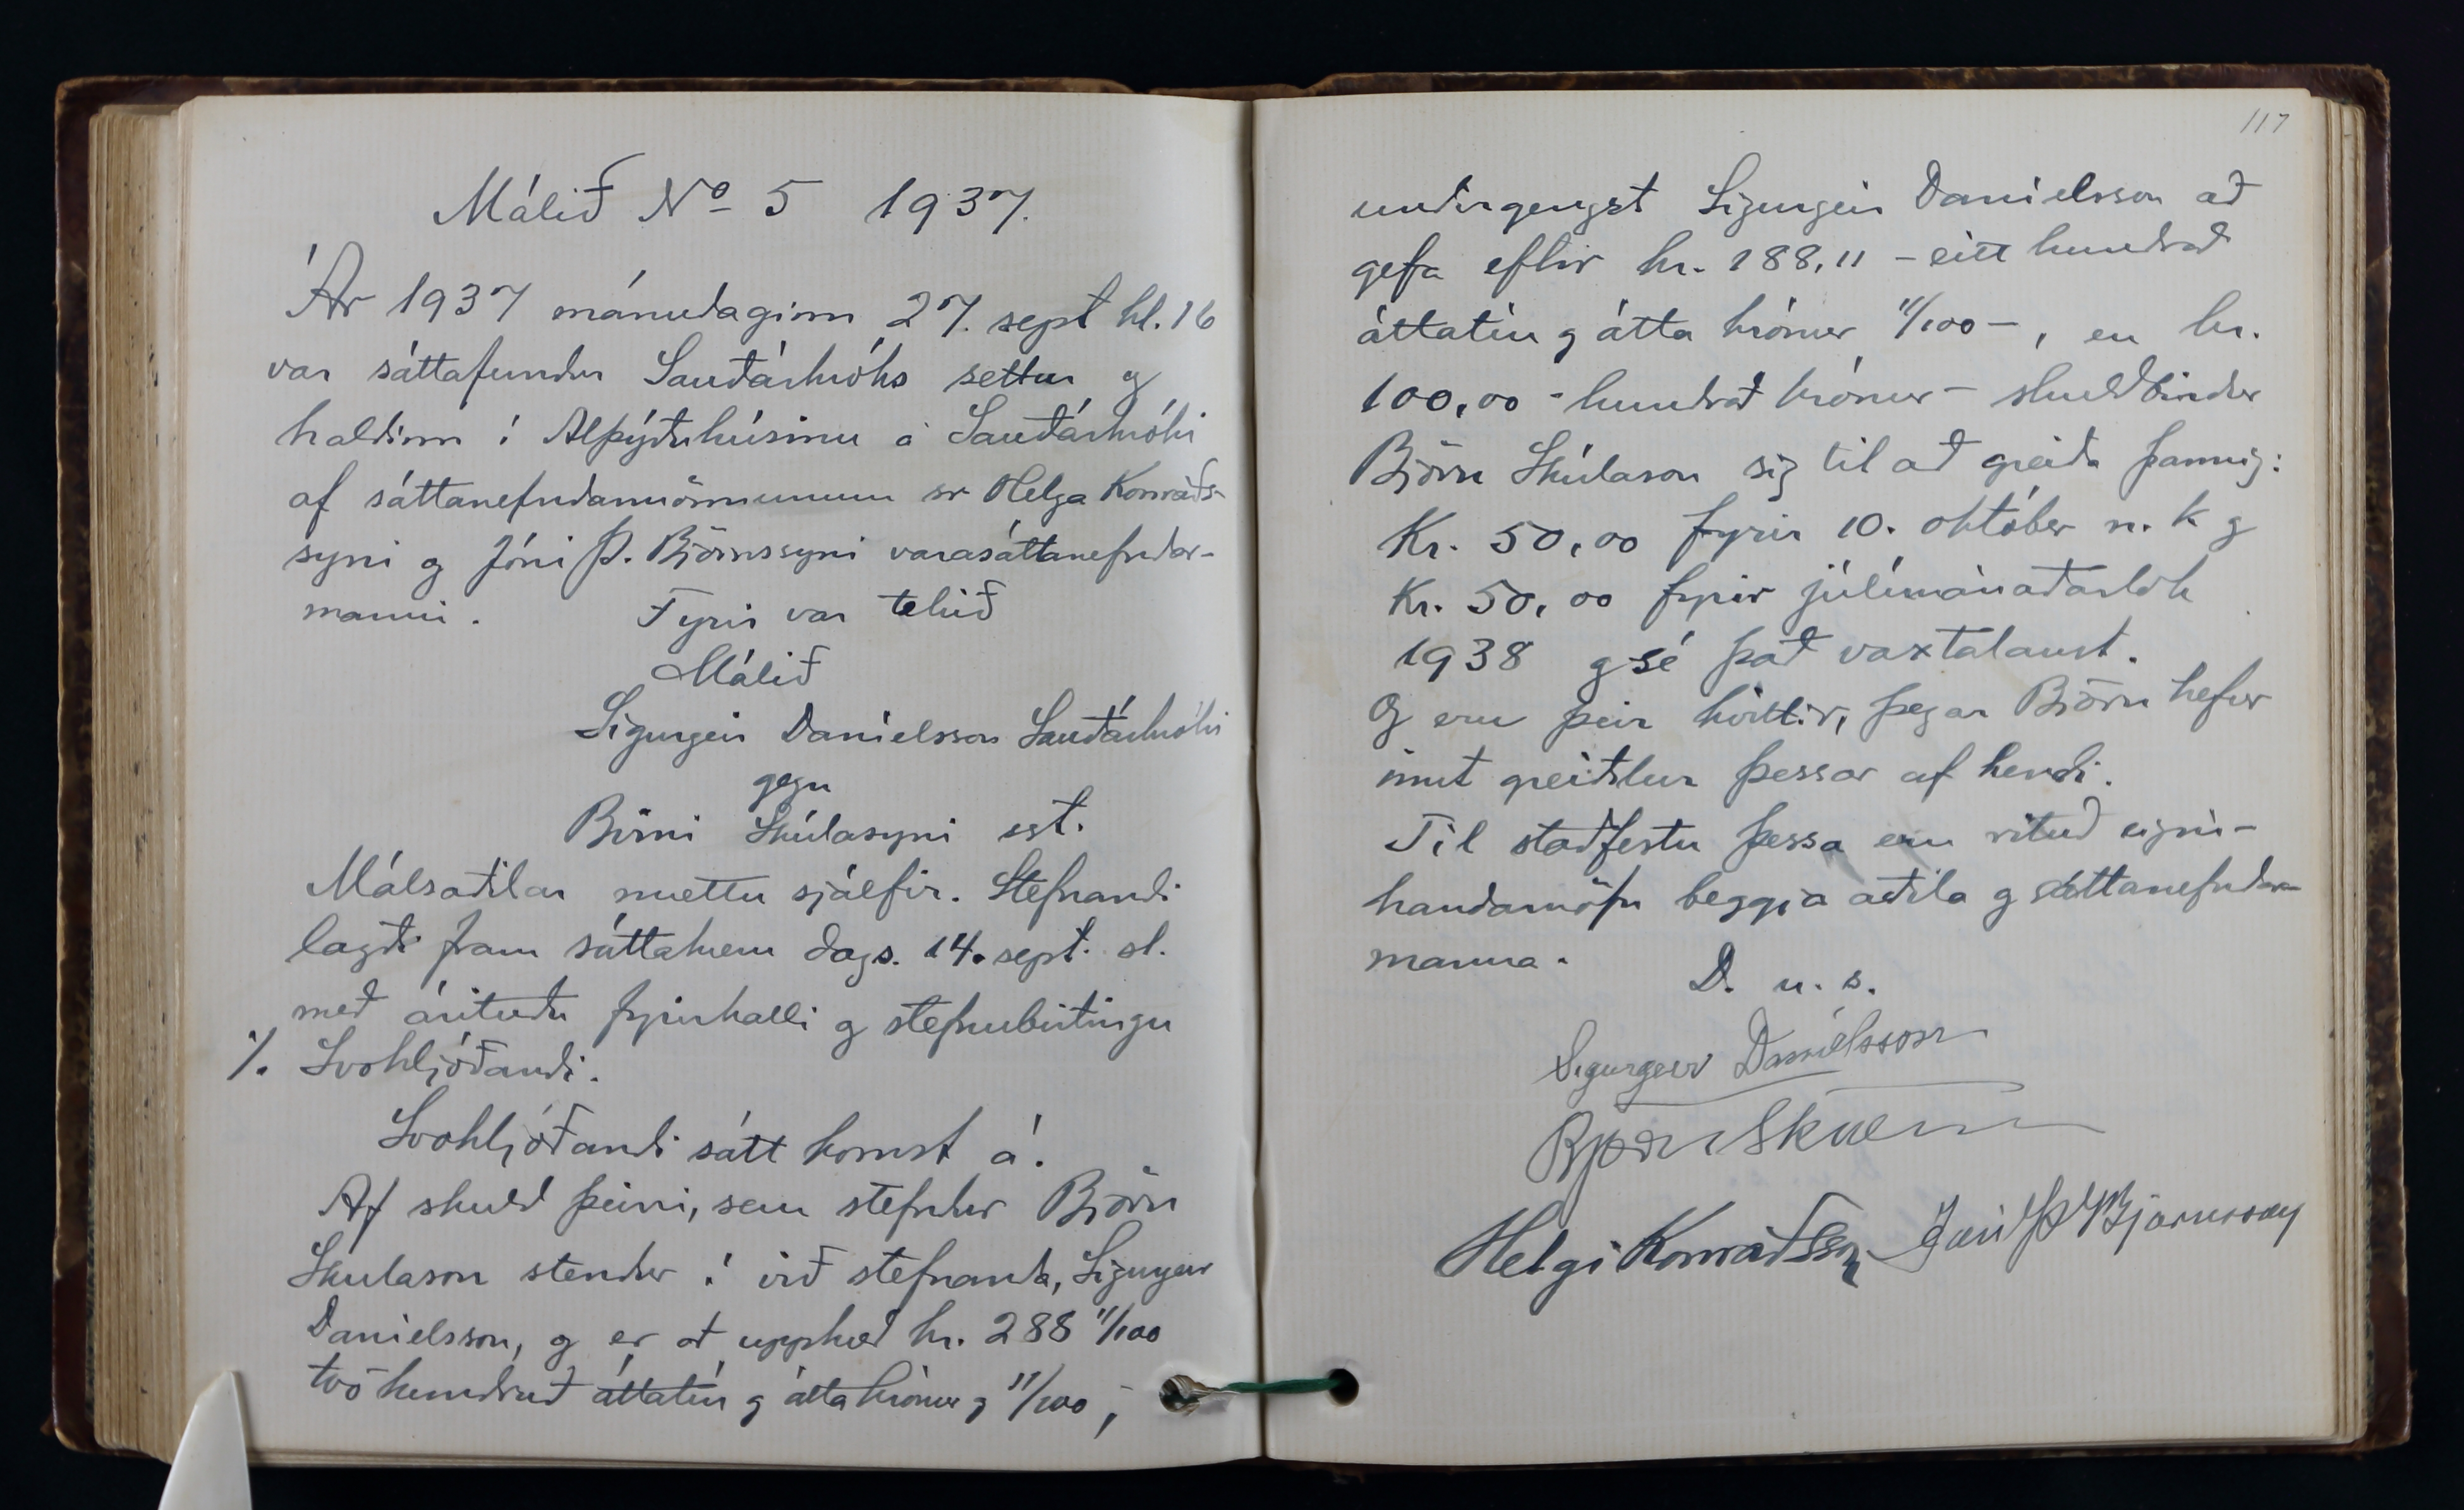 Málið No 5 1937.
Ár 1937 mánudaginn 27. sept kl. 16
var sáttafundur Sauðárkróks settur og
haldinn í Alþýðuhúsinu á Sauðárkróki
af sáttanefndarmönnunum sr Helga Konráðs-
syni og Jóni Þ. Björnssyni varasáttanefndar-
manni. Fyrir var tekið
Málið
Sigurgeir Daníelsson Sauðárkróki
gegn
Birni Skúlasyni sst.
Málsaðilar mættu sjálfir. Stefnandi
lagði fram sáttakæru dags. 14. sept. sl.
með árituðu fyrirkalli og stefnubirtingu
/. Svohljóðandi.
Svohljóðandi sátt komst á:
Af skuld þeirri, sem stefndur Björn
Skulason stendur í við stefnanda, Sigurgeir
Danielsson, og er at upphæð kr. 288 11/100
tvö hundruð áttatíu og átta krónur og 11/100,
117
undirgengst Sigurgeir Danielsson að
gefa eftir kr. 188,11 - eitt hundrað
áttatíu og átta krónur 11/100 -, en kr.
100,00 - hundrað krónur - skuldbindur
Björn Skúlason sig til að greiða þannig:
Kr. 50,00 fyrir 10. október n. k og
Kr. 50,00 fyrir júlímánaðarlok
1938 og sé það vaxtalaust.
Og eru þeir kvittir, þegar Björn hefur
innt greiðslur þessar af hendi.
Til staðfestu þessa eru rituð eigin-
handarnöfn beggja aðila og sáttanefndar-
manna.
D. u. s.
Sigurgeir Daníelsson
Björn Skúlason
Helgi Konráðsson Jón Þ Björnsson